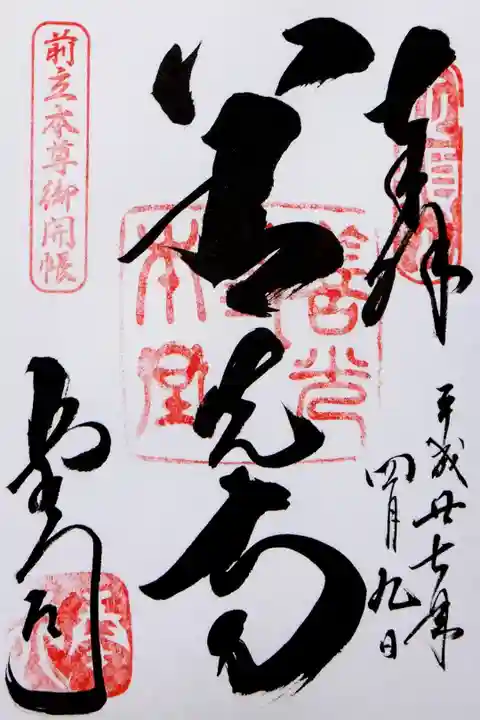 奉拝
平成廿七年
四月九日
善光寺
善光
本堂
前立本尊御開帳